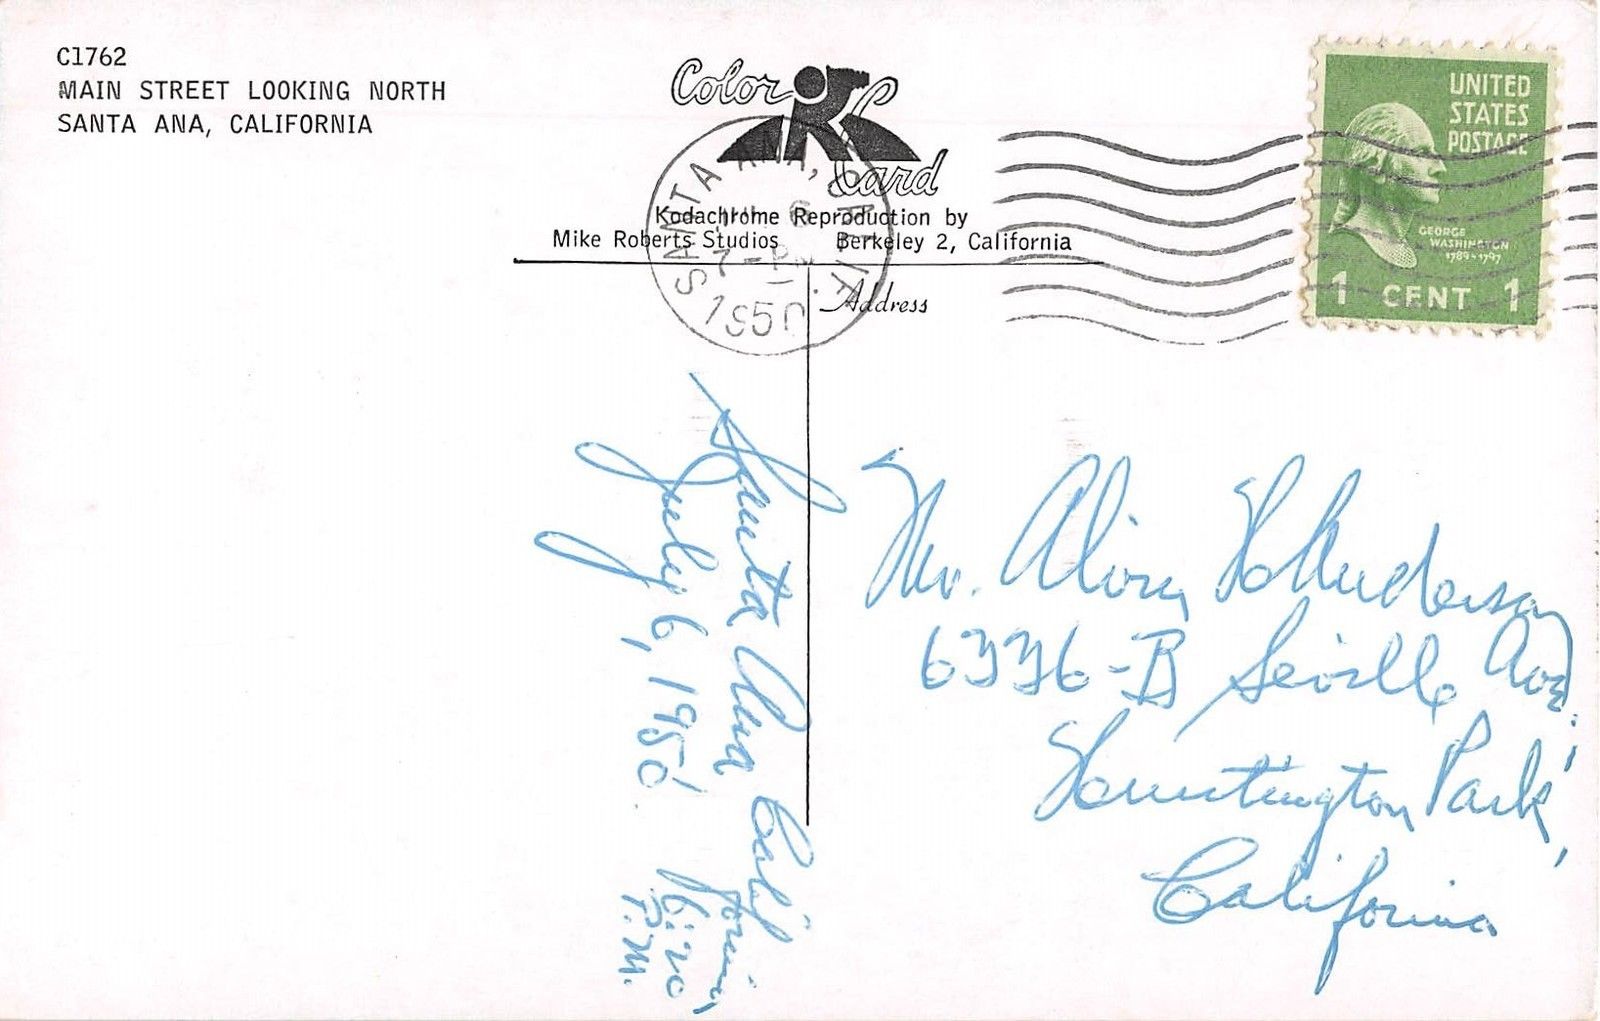 C1762
MAIN STREET LOOKING NORTH
SANTA ANA, CALIFORNIA
Color
Card
Kodachrome Reproduction by
Mike Roberts Studios Berkeley 2, California
SANTA ANA, CALIF.
6
7-PM
1950
Address
UNITED
STATES
POSTAGE
GEORGE
WASHINGTON
1789-1797
1 CENT 1
Santa Ana California,
July 6, 1950. 6:20
P.M.
Mr.
-B Seville Ave.,
Huntington Park,
California